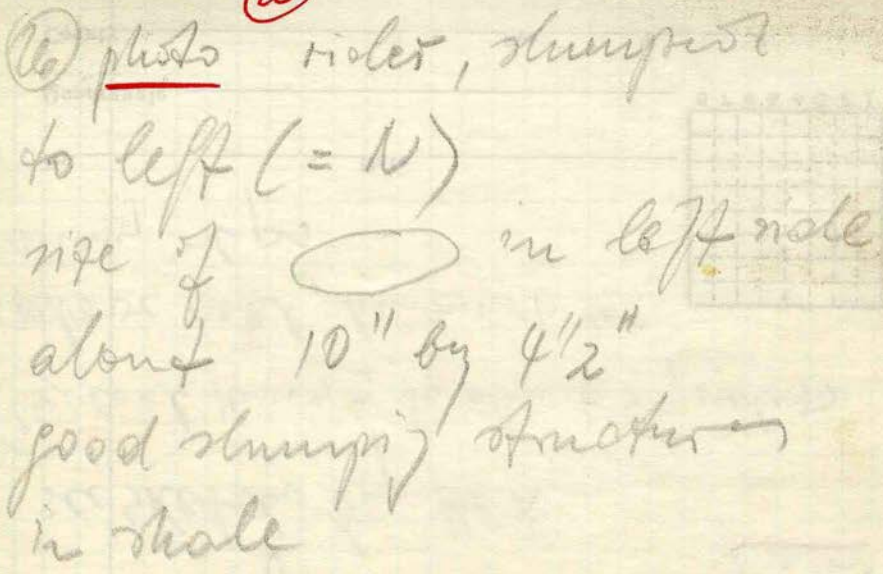 26 photo sider, slumped
to left (= N)
size of in left side
about 10" by 4"2"
good slumping structures
in shale